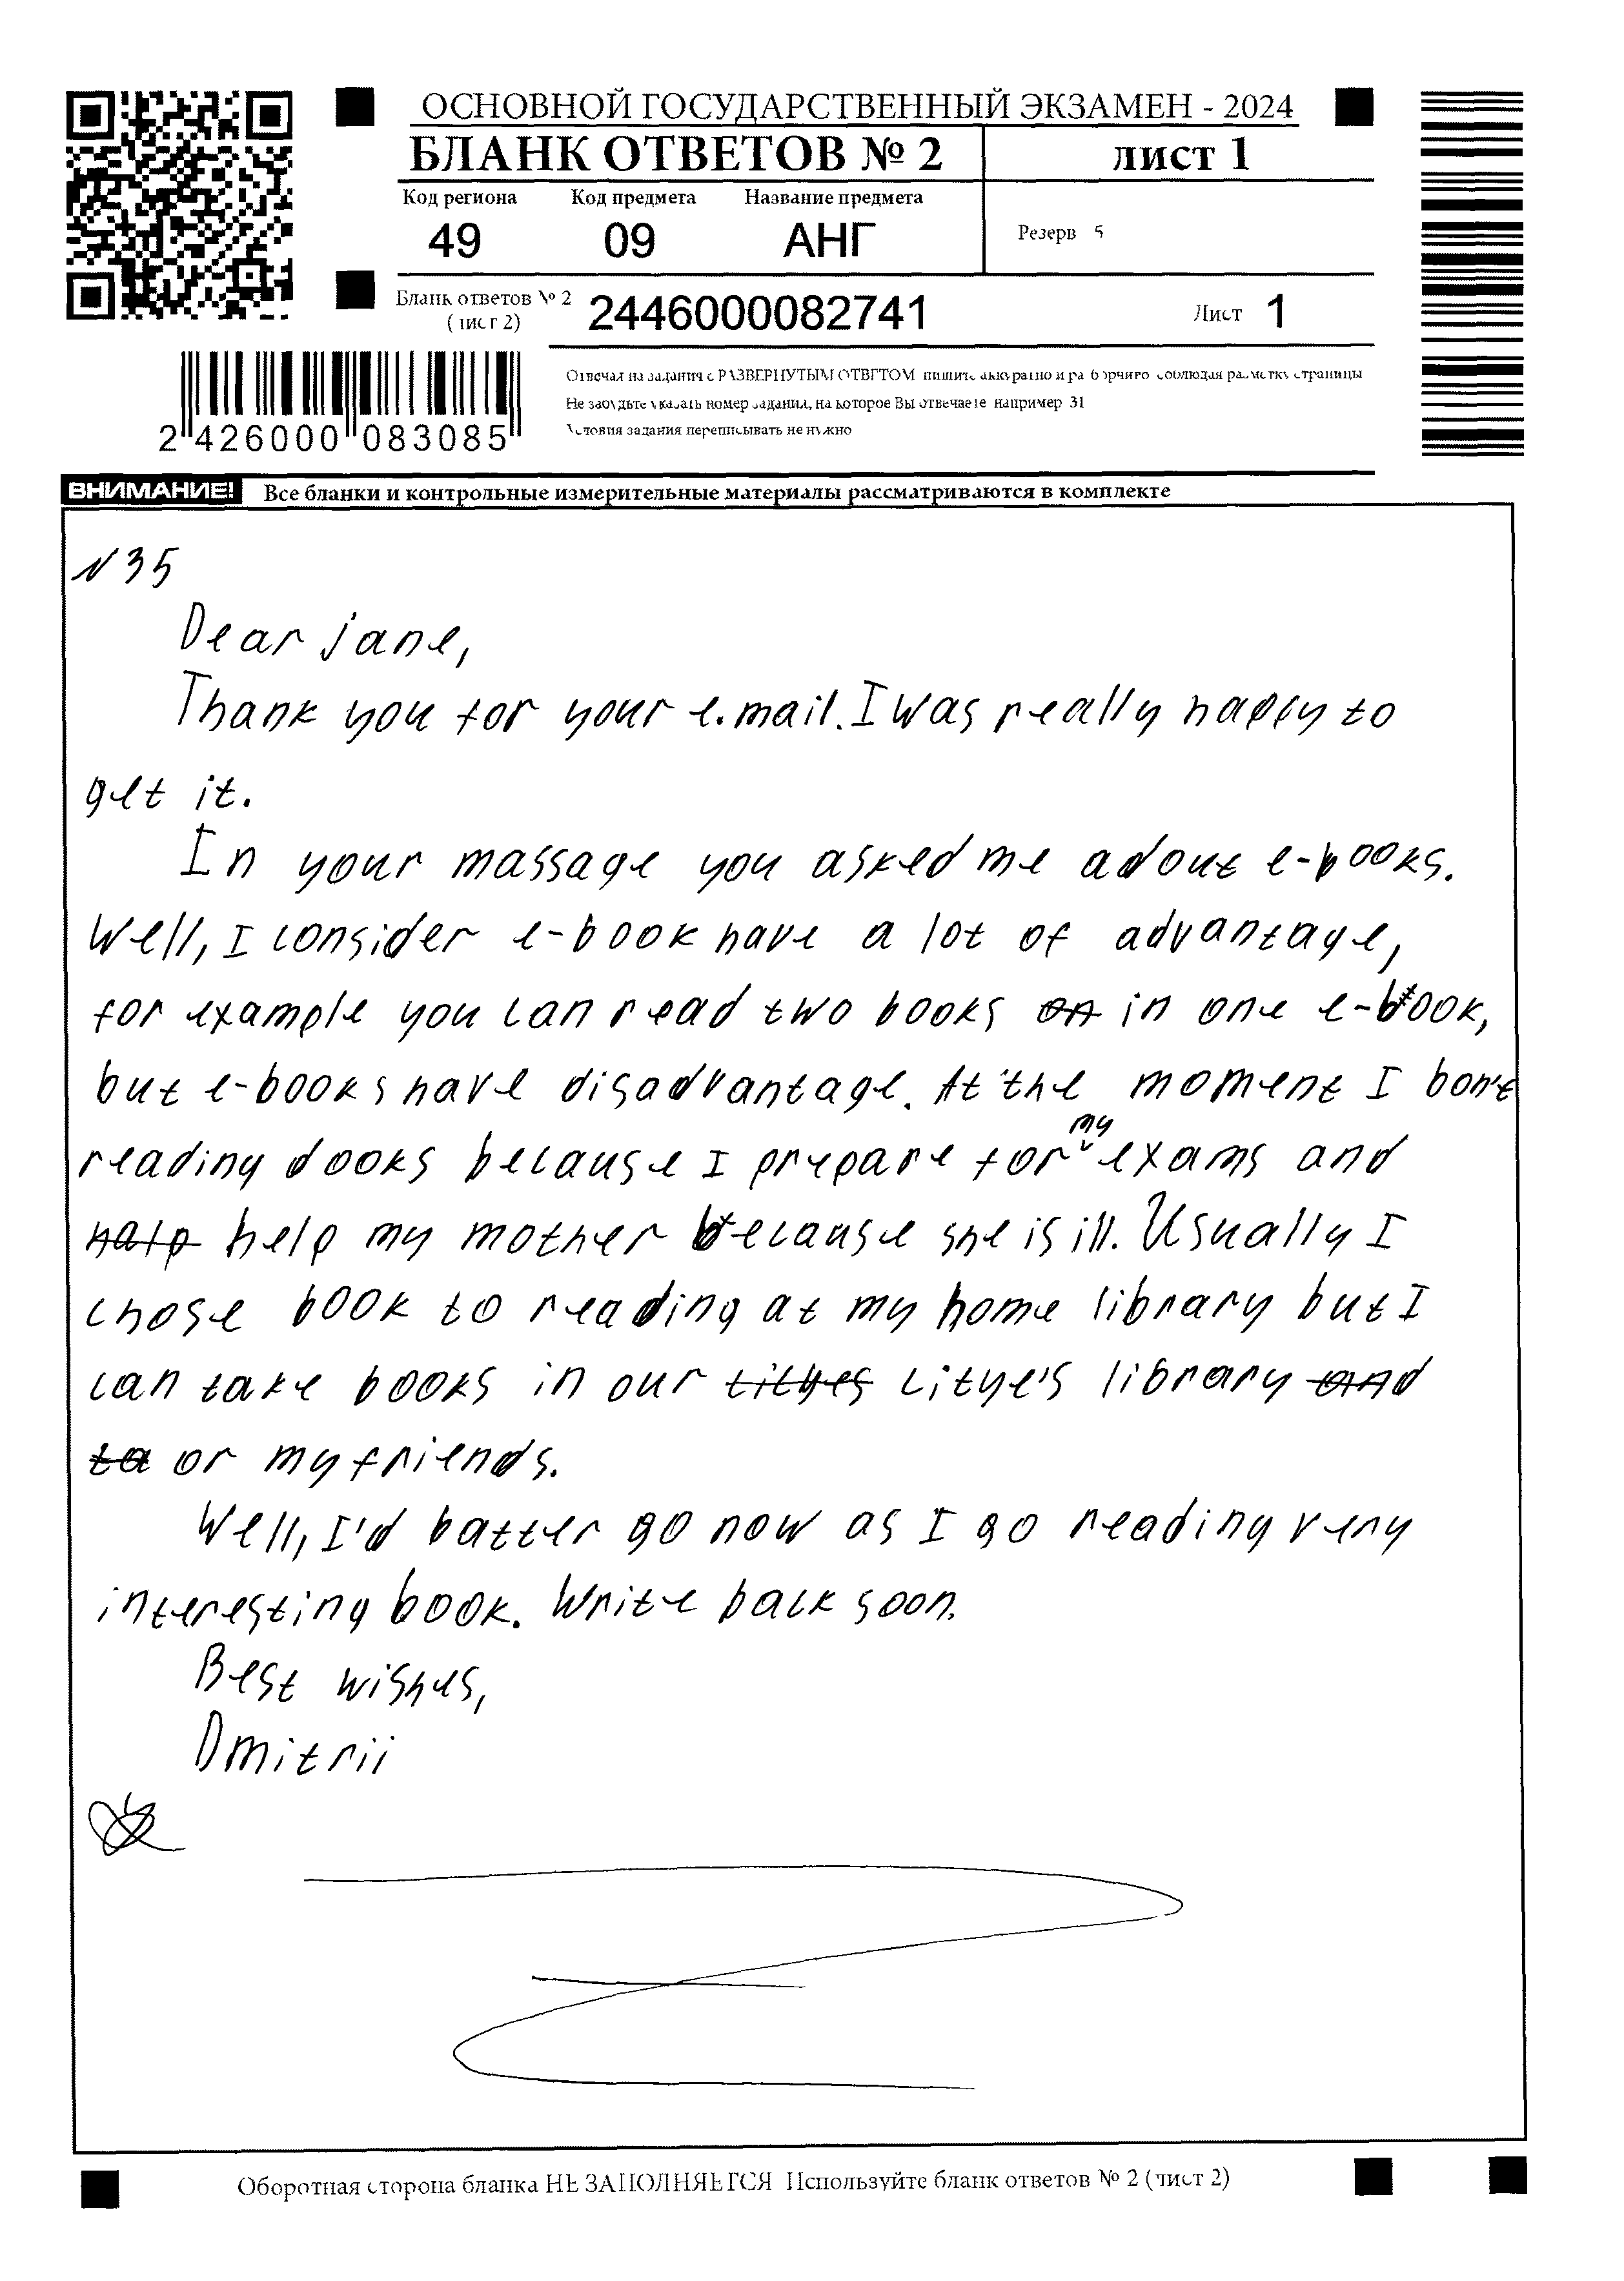 ОСНОВНОЙ ГОСУДАРСТВЕННЫЙ ЭКЗАМЕН - 2024
БЛАНК ОТВЕТОВ № 2
лист 1
Код региона Код предмета Название предмета
49 09 АНГ
Резерв 5
Бланк ответов № 2
(лист 2)
2446000082741
Лист 1
2 426000 083085
Отвечая на задания с РАЗВЕРНУТЫМ ОТВЕТОМ пишите аккуратно и разборчиво соблюдая разметку страницы
Не забудьте указать номер задания, на которое Вы отвечаете например 31
Условия задания переписывать не нужно
ВНИМАНИЕ! Все бланки и контрольные измерительные материалы рассматриваются в комплекте
N 35
Dear jane,
Thank you for your e.mail. I was really happy to
get it.
In your massage you asked me adout e-books.
Well, I consider e-book have a lot of advantage,
for example you can read two books on in one e-book,
but e-books have disadvantage. At the moment I bon't
reading dooks because I prepare for my exams and
halp help my mother because she is ill. Usually I
chose book to reading at my home library but I
can take books in our cityes citye's library and
ta or my friends.
Well, I'd batter go now as I go reading very
interesting book. Write back soon.
Best wishes,
Dmitrii
Z
Оборотная сторона бланка НЕ ЗАПОЛНЯЕТСЯ Используйте бланк ответов № 2 (лист 2)